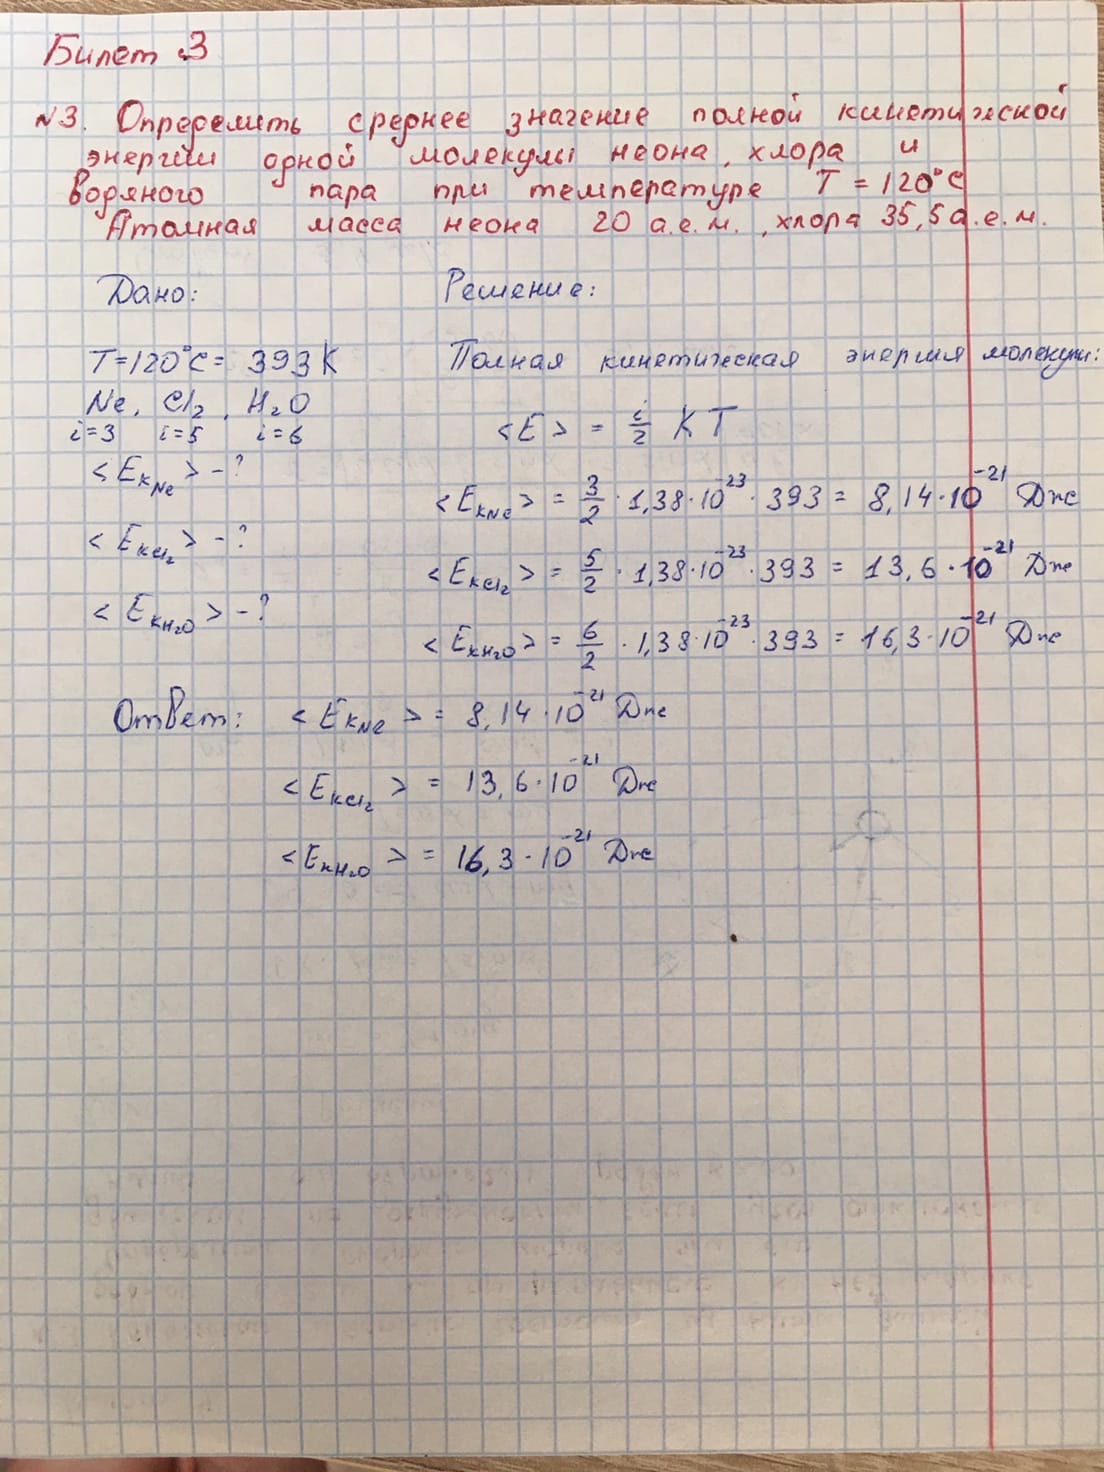 Билет 3
№3. Определить среднее значение полной кинетической
энергии одной молекулы неона, хлора и
водяного пара при температуре T = 120°C
Атомная масса неона 20 а.е.м., хлора 35,5 а.е.м.
Дано:
T=120°C= 393K
Ne, Cl₂, H₂O
i=3 i=5 i=6
<E_kNe> - ?
<E_kCl₂> - ?
<E_kH₂O> - ?
Решение:
Полная кинетическая энергия молекулы:
<E> = i/2 KT
<E_kNe> = 3/2 · 1,38·10⁻²³ · 393 = 8,14·10⁻²¹ Дж
<E_kCl₂> = 5/2 · 1,38·10⁻²³ · 393 = 13,6·10⁻²¹ Дж
<E_kH₂O> = 6/2 · 1,38·10⁻²³ · 393 = 16,3·10⁻²¹ Дж
Ответ: <E_kNe> = 8,14·10⁻²¹ Дж
<E_kCl₂> = 13,6·10⁻²¹ Дж
<E_kH₂O> = 16,3·10⁻²¹ Дж